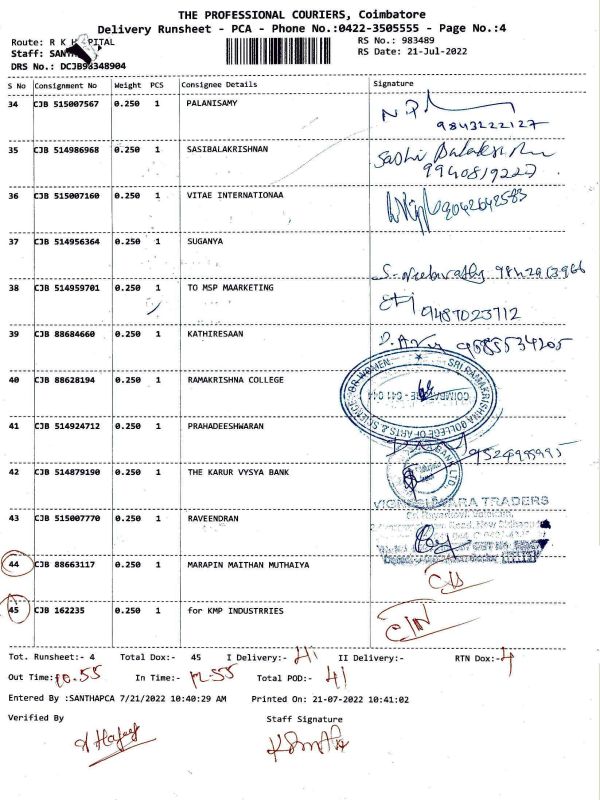 THE PROFESSIONAL COURIERS, Coimbatore
Delivery Runsheet - PCA - Phone No.:0422-3505555 - Page No.:4
Route: R K
RS No.: 983489
Staff:
RS Date: 21-Jul-2022
DRS No.: DCJB98348904
S No Consignment No Weight PCS Consignee Details Signature
34 CJB 515007567 0.250 1 PALANISAMY
9843222127
35 CJB 514986968 0.250 1 SASIBALAKRISHNAN
9940819227
36 CJB 515007160 0.250 1 VITAE INTERNATIONAA
9042642583
37 CJB 514956364 0.250 1 SUGANYA
38 CJB 514959701 0.250 1 TO MSP MAARKETING
9487023712
39 CJB 88684660 0.250 1 KATHIRESAAN
40 CJB 88628194 0.250 1 RAMAKRISHNA COLLEGE
SRI RAMAKRISHNA COLLEGE OF ARTS & SCIENCE FOR WOMEN
COIMBATORE - 641 044
41 CJB 514924712 0.250 1 PRAHADEESHWARAN
42 CJB 514879190 0.250 1 THE KARUR VYSYA BANK
BANK LTD.
43 CJB 515007770 0.250 1 RAVEENDRAN
VIGNESHWARA TRADERS
44 CJB 88663117 0.250 1 MARAPIN MAITHAN MUTHAIYA
45 CJB 162235 0.250 1 for KMP INDUSTRRIES
Tot. Runsheet:- 4 Total Dox:- 45 I Delivery:- 41 II Delivery:- RTN Dox:- 4
Out Time: 10.55 In Time:- 12.55 Total POD:- 41
Entered By :SANTHAPCA 7/21/2022 10:40:29 AM Printed On: 21-07-2022 10:41:02
Verified By Staff Signature